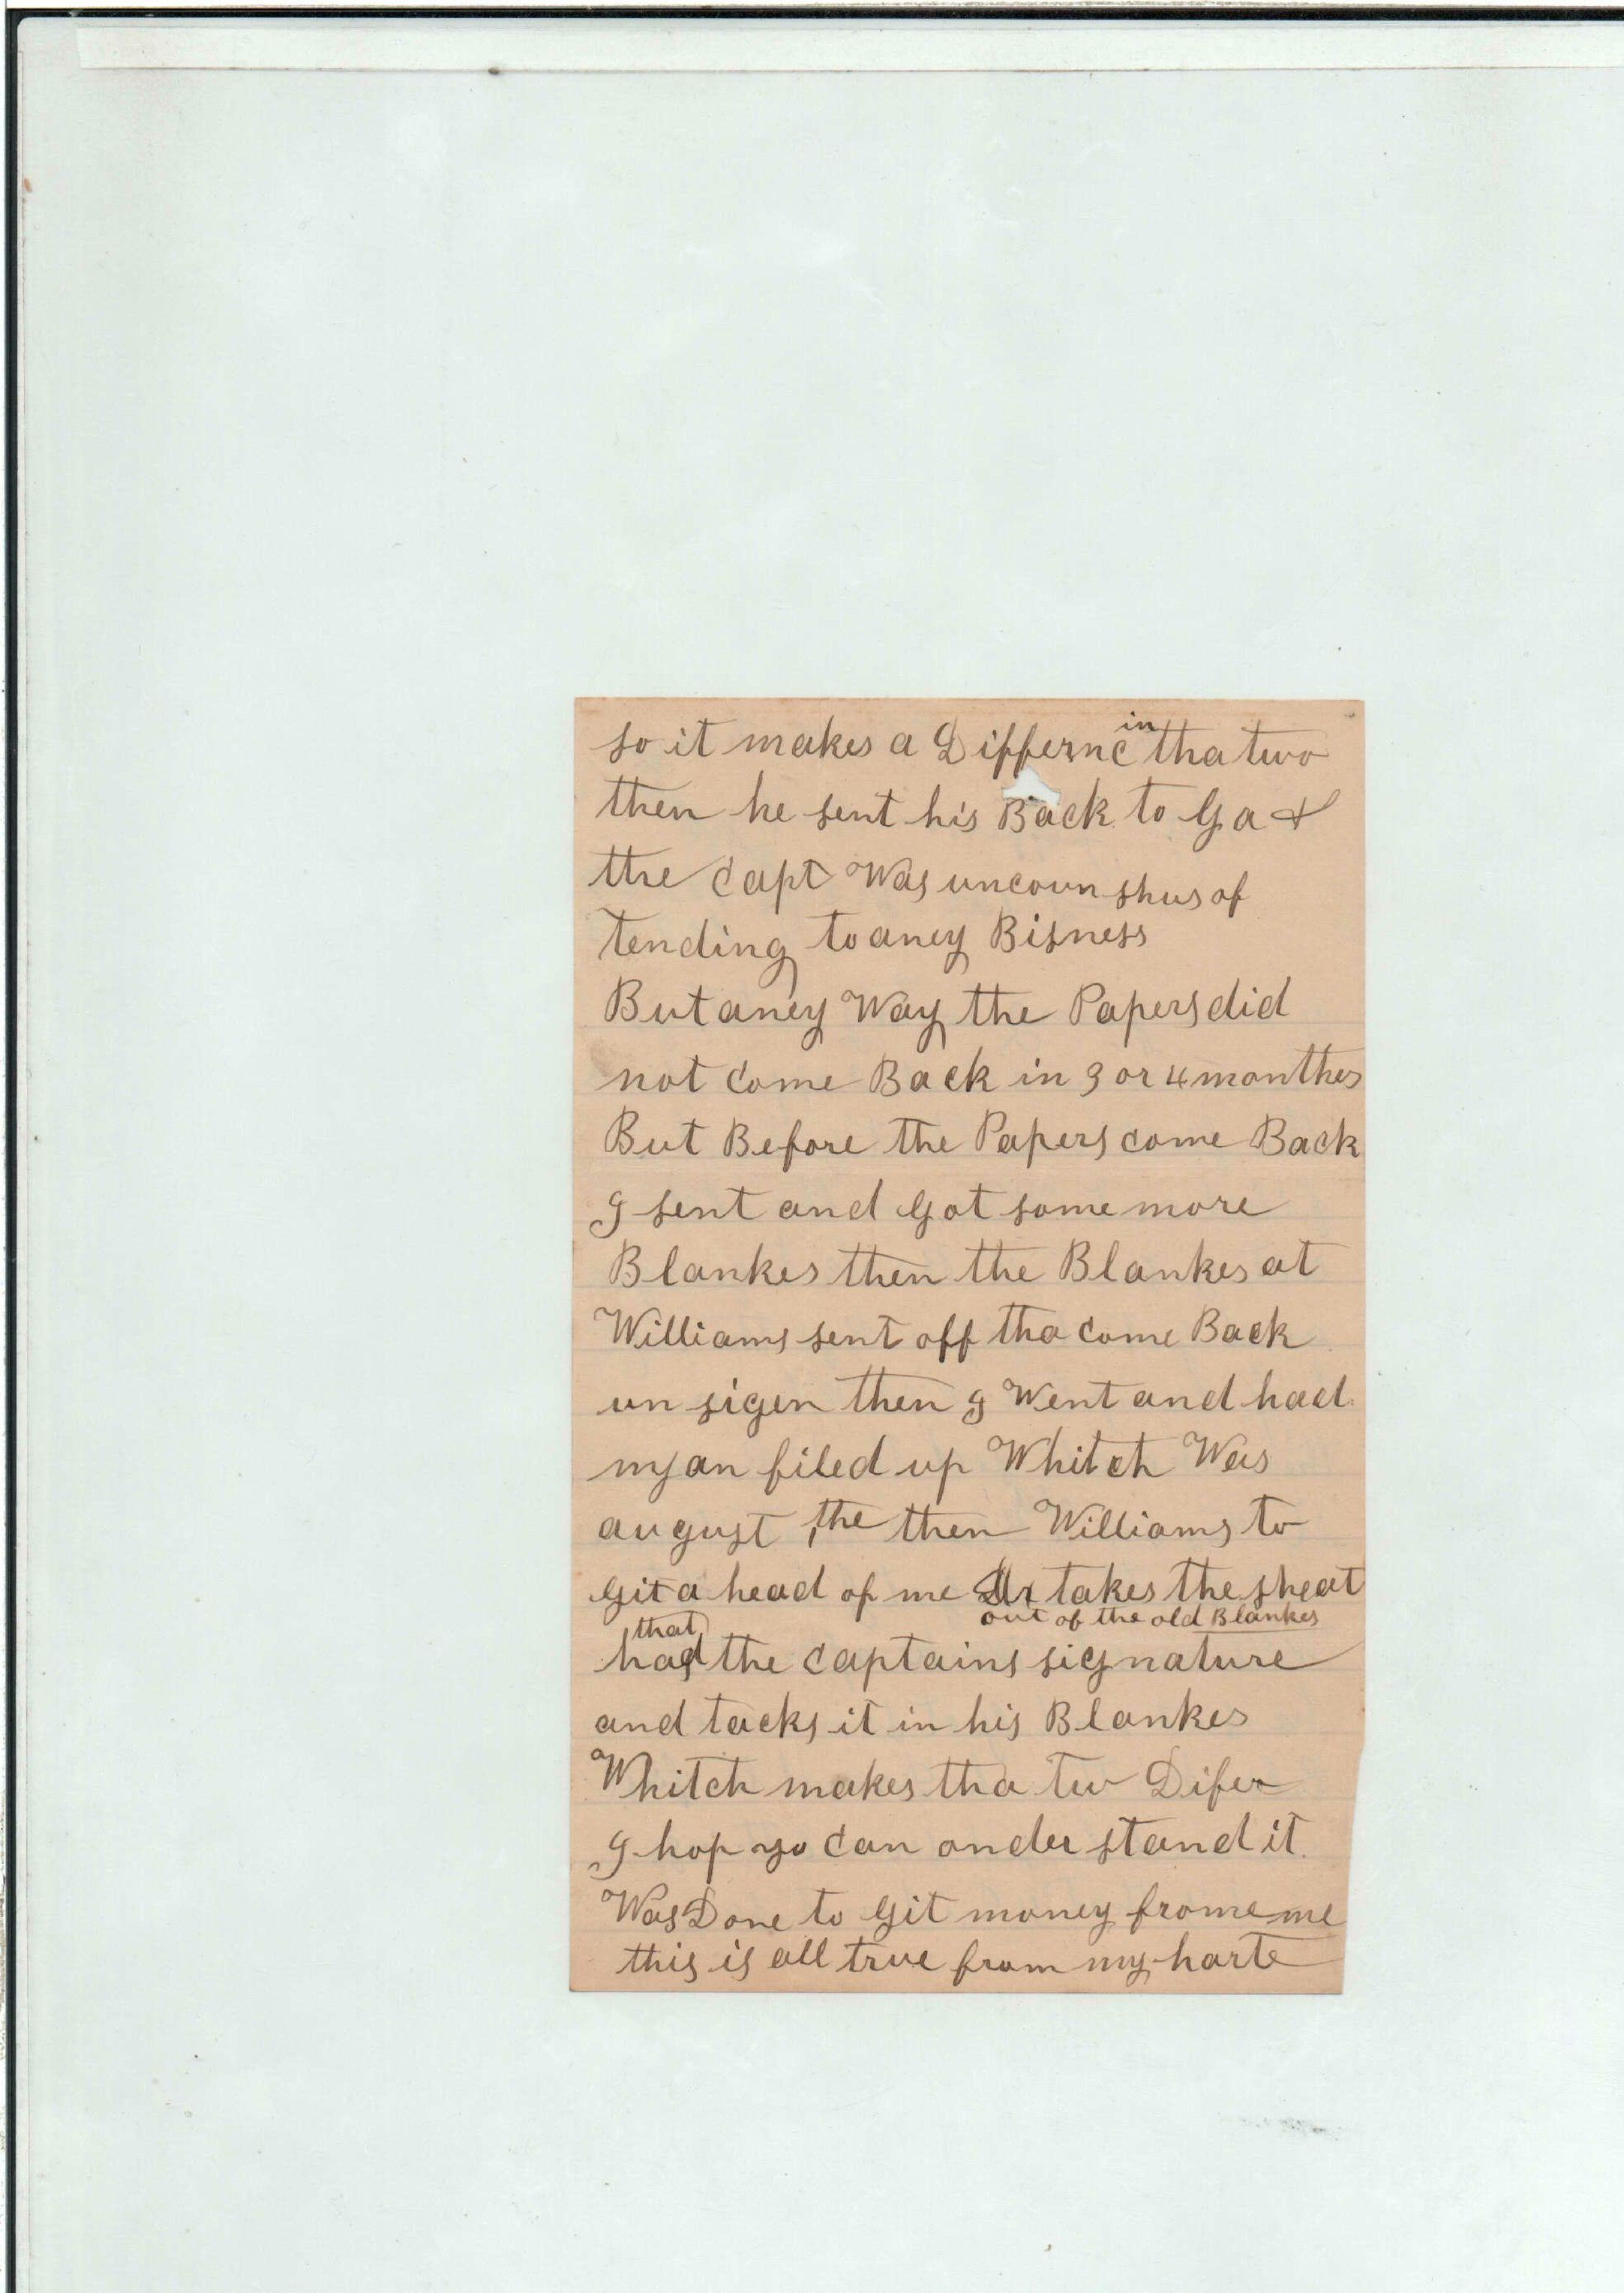 so it makes a Differnc in tha two
then he sent his Back to Ga &
the Capt Was uncoun shus of
tending to aney Bisness
But aney Way the Papers did
not Come Back in 3 or 4 monthes
But Before the Papers come Back
I sent and Got some more
Blankes then the Blankes at
Williams sent off tha Come Back
un sigen then I Went and had
my an filed up Whitch Was
august the then Williams to
Git a head of me takes the sheat
out of the old Blankes
that
had the Captains signature
and tacks it in his Blankes
Whitch makes tha tw Difer
I hop yo Can onder stand it
Was Done to Git money frome me
this is all true from my harte